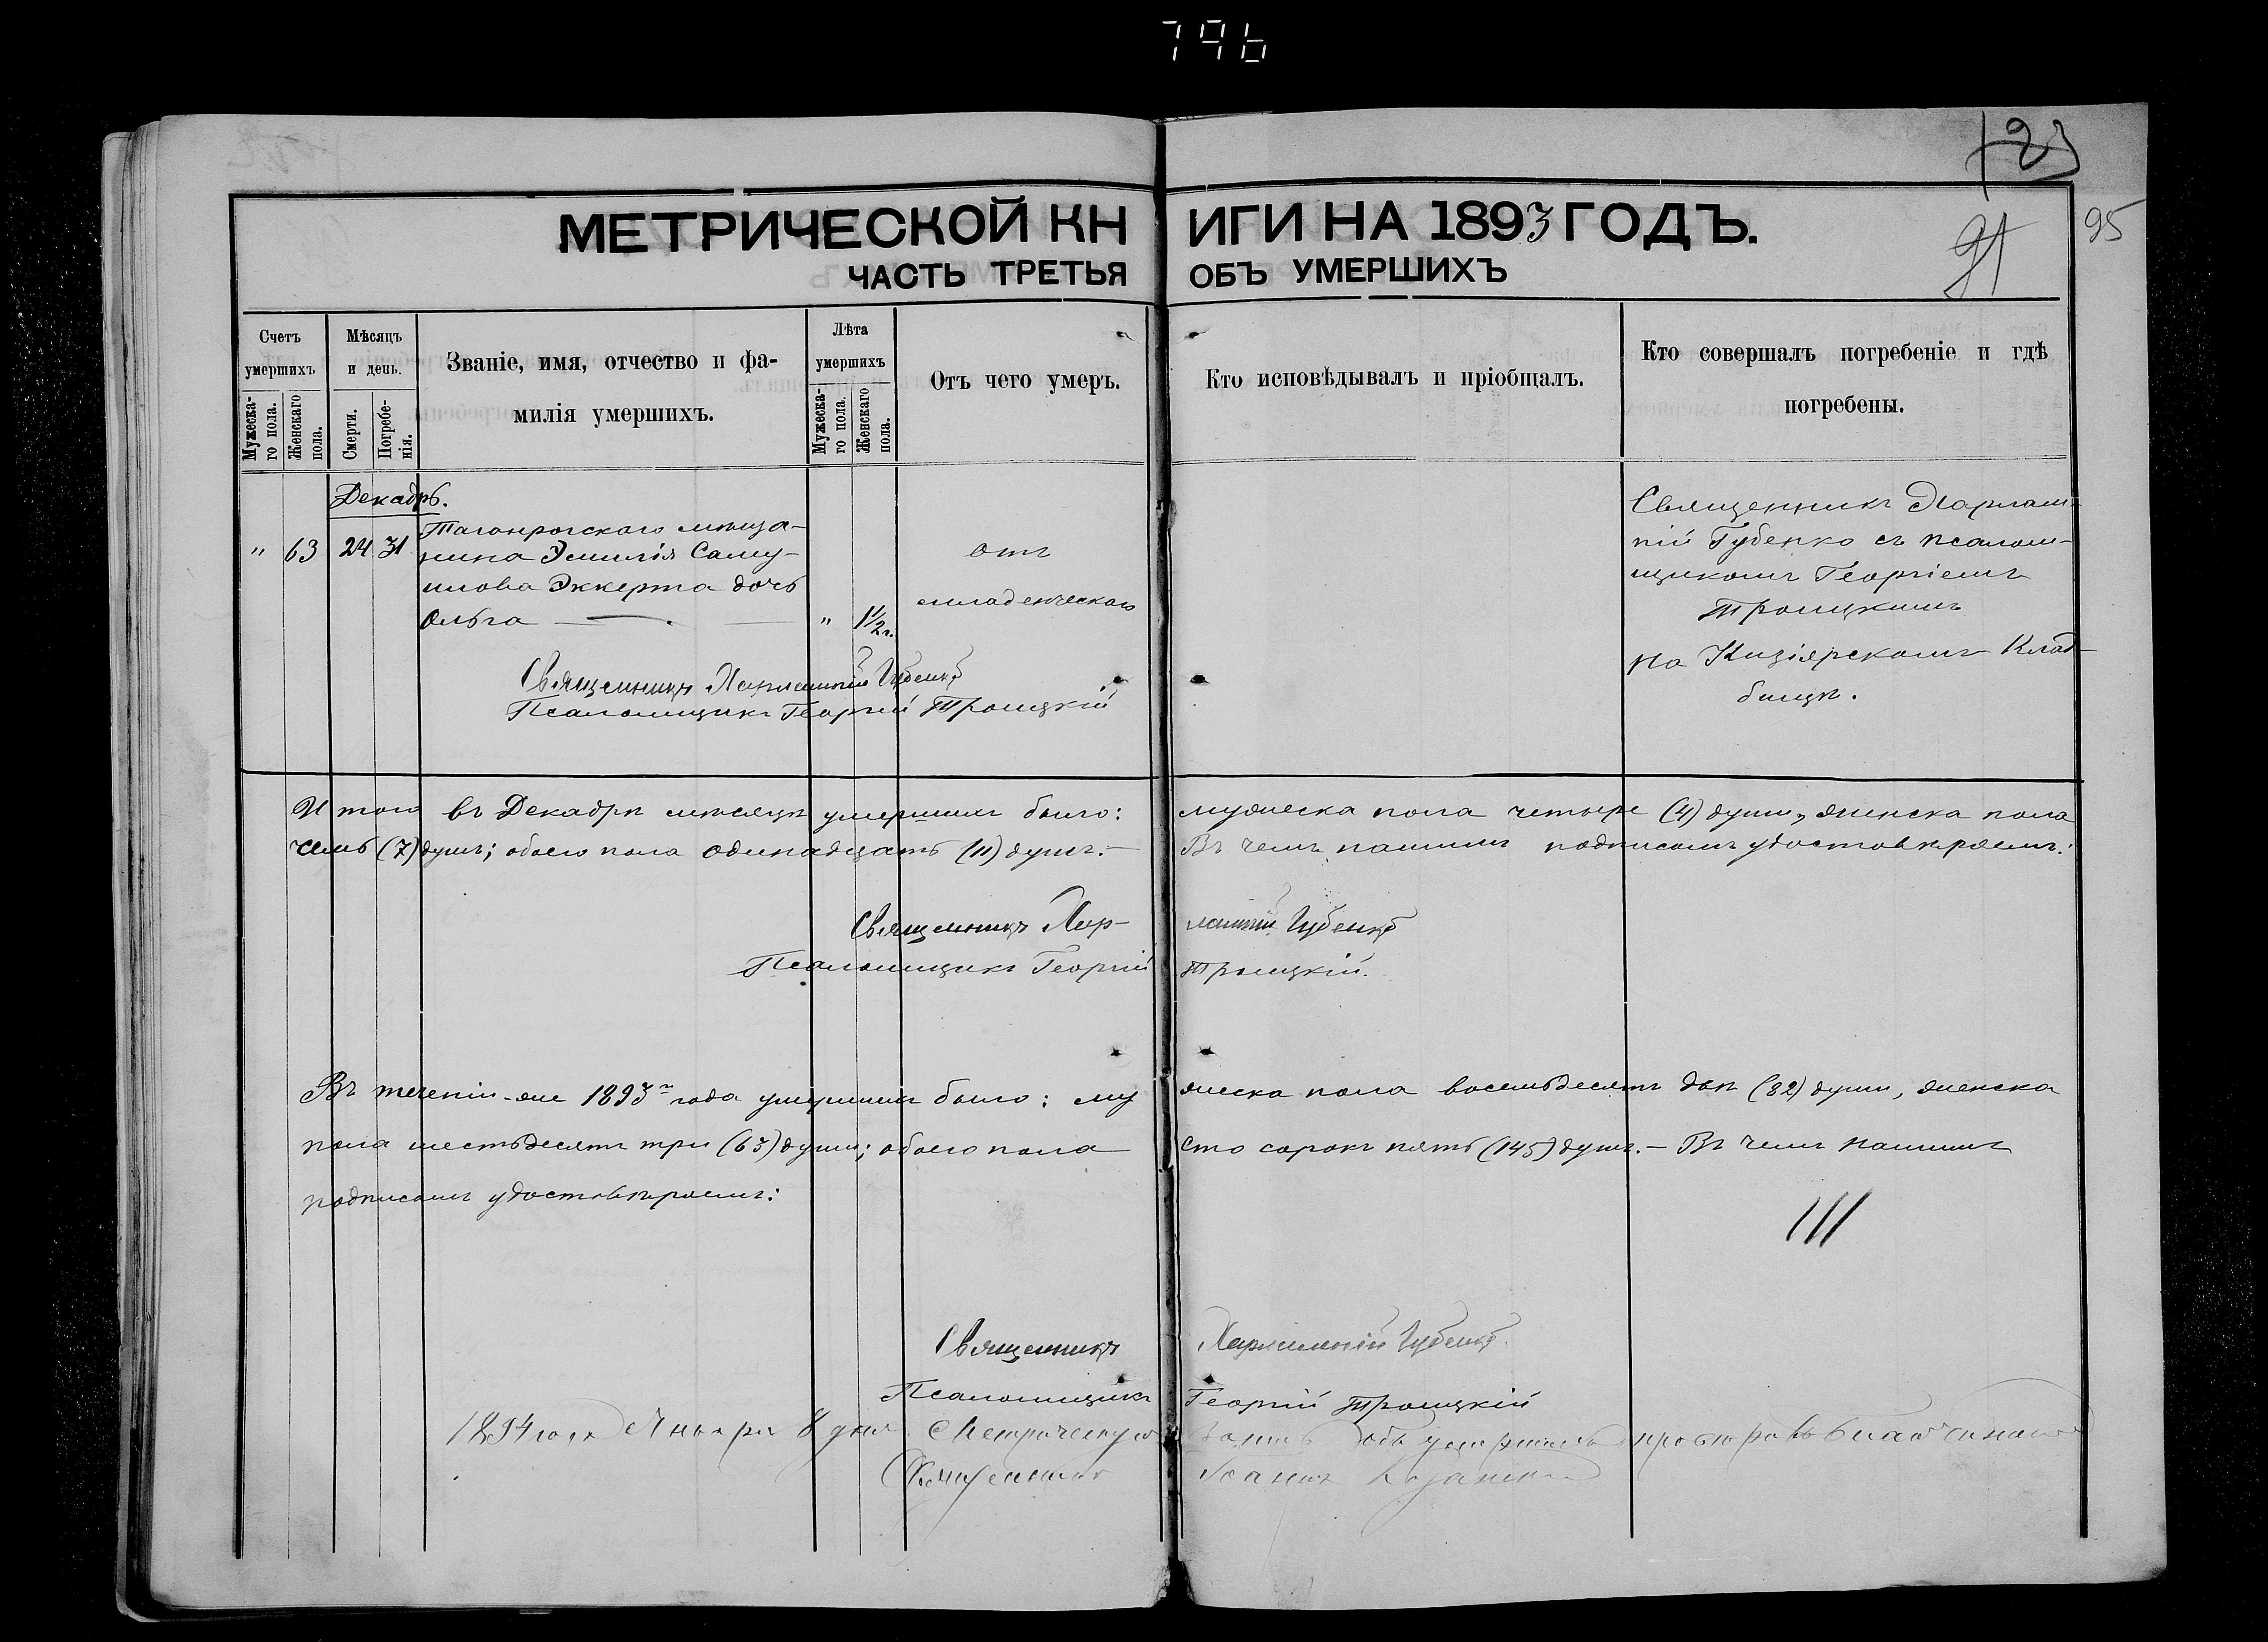 796
123
95
МЕТРИЧЕСКОЙ КНИГИ НА 1893 ГОДЪ.
91
ЧАСТЬ ТРЕТЬЯ ОБЪ УМЕРШИХЪ
Счетъ умершихъ
Мужеска-го пола.
Женскаго пола.
Мѣсяцъ и день.
Смерти.
Погребе-нія.
Званіе, имя, отчество и фа-
милія умершихъ.
Лѣта умершихъ
Мужеска-го пола.
Женскаго пола.
Отъ чего умеръ.
Кто исповѣдывалъ и пріобщалъ.
Кто совершалъ погребеніе и гдѣ
погребены.
Декабрь.
" 63 24 31
Таганрогскаго мѣща-
нина Эмилія Саму-
илова Эккерта дочь
Ольга — " 1 1/2 г.
отъ
младенческаго
Священникъ Харлам-
пій Губенко съ псалом-
щикомъ Георгіемъ
Троицкимъ
на Кизіярскомъ Клад-
бищѣ.
Священникъ Харлампій Губенко
Псаломщикъ Георгій Троицкій
Итого въ Декабрѣ мѣсяцѣ умершихъ было: мужеска пола четыре (4) души, женска пола
семь (7) душъ; обоего пола одинадцать (11) душъ.— Въ чемъ нашимъ подписомъ удостовѣряемъ:
Священникъ Харлампій Губенко
Псаломщикъ Георгій Троицкій.
Въ теченіи-же 1893 г. года умершихъ было: мужеска пола восемьдесятъ двѣ (82) души, женска
пола шестьдесятъ три (63) души; обоего пола сто сорокъ пять (145) душъ.— Въ чемъ нашимъ
подписомъ удостовѣряемъ:
Священникъ Харлампій Губенко.
Псаломщикъ Георгій Троицкій
1894 года Января 8 дня Метрическую объ умершихъ
Священникъ Іоаннъ